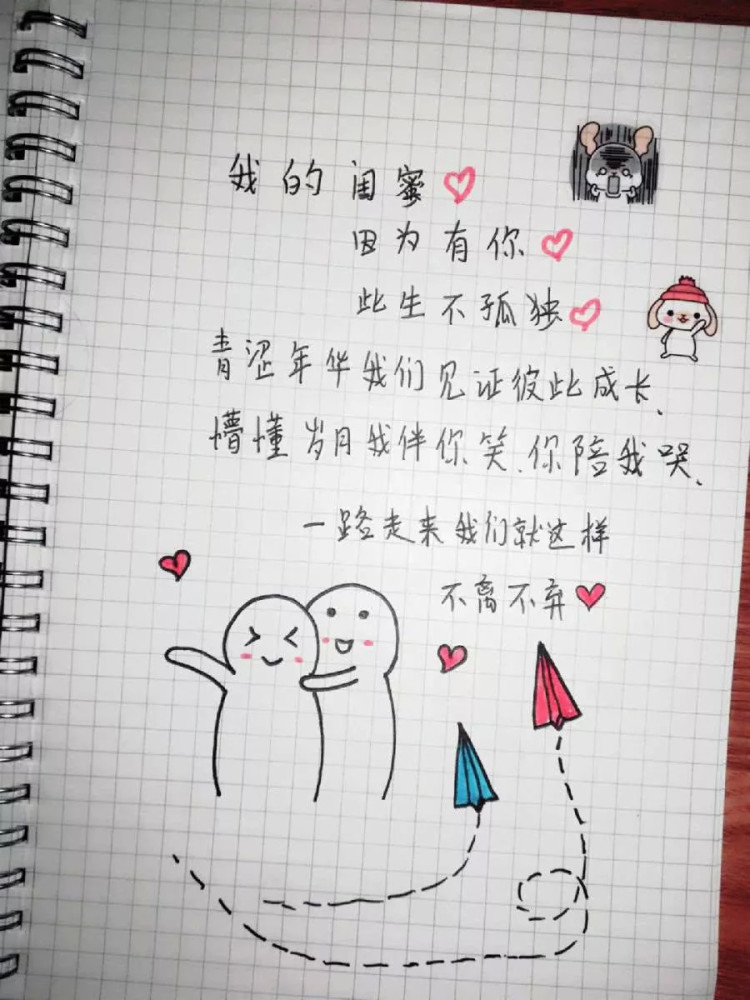 我的闺蜜
因为有你
此生不孤独
青涩年华我们见证彼此成长、
懵懂岁月我伴你笑、你陪我哭、
一路走来我们就这样
不离不弃